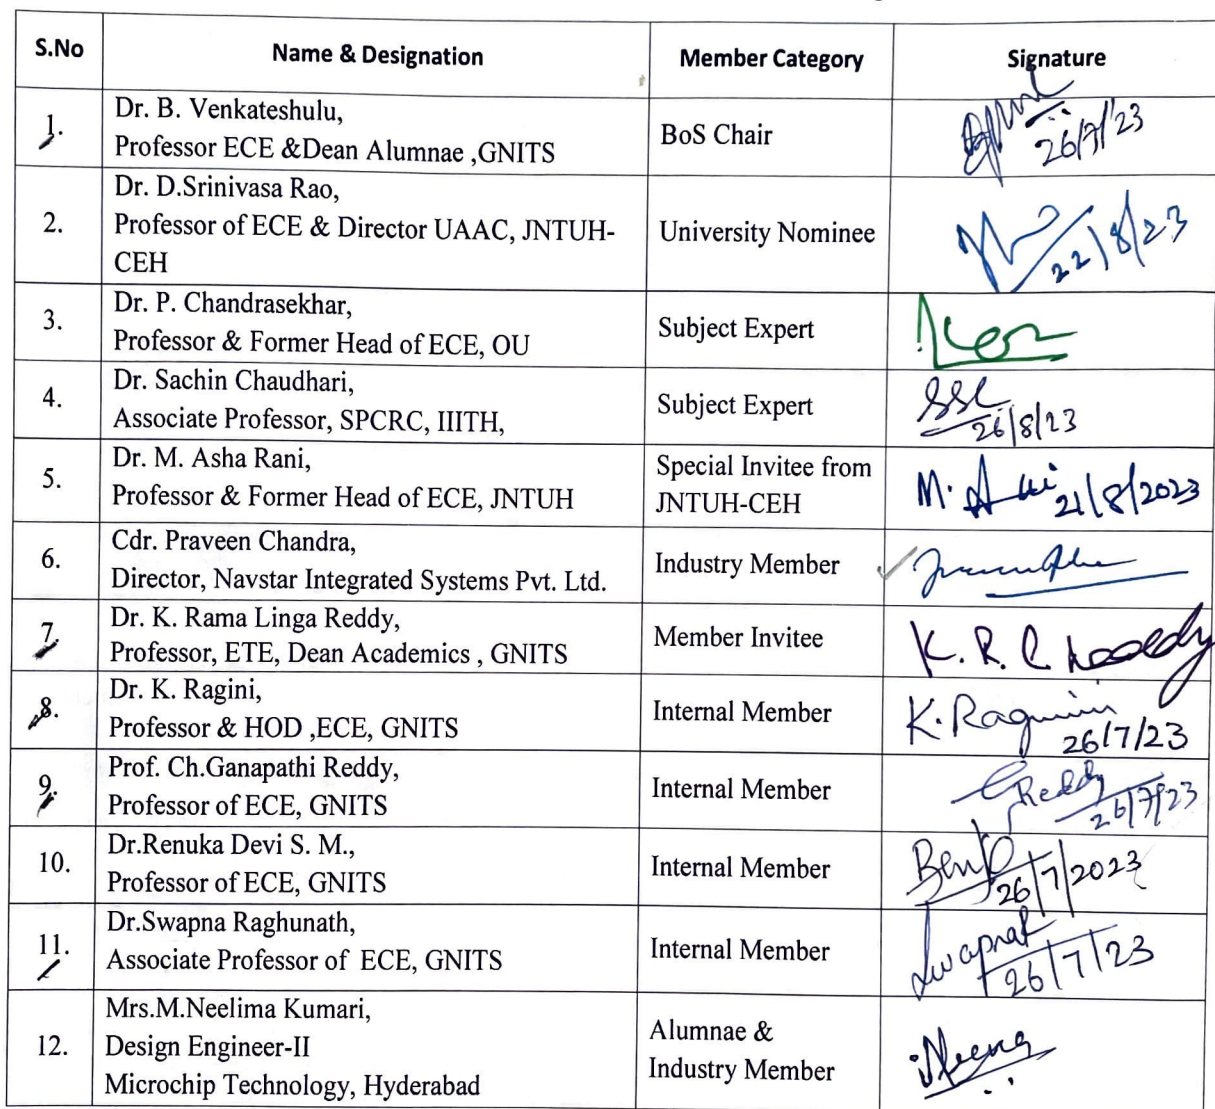 S.No Name & Designation Member Category Signature
1. Dr. B. Venkateshulu,
Professor ECE &Dean Alumnae ,GNITS
BoS Chair
26/7/'23
2. Dr. D.Srinivasa Rao,
Professor of ECE & Director UAAC, JNTUH-
CEH
University Nominee
22/8/23
3. Dr. P. Chandrasekhar,
Professor & Former Head of ECE, OU
Subject Expert
4. Dr. Sachin Chaudhari,
Associate Professor, SPCRC, IIITH,
Subject Expert
SSC
26/8/23
5. Dr. M. Asha Rani,
Professor & Former Head of ECE, JNTUH
Special Invitee from
JNTUH-CEH
21/8/2023
6. Cdr. Praveen Chandra,
Director, Navstar Integrated Systems Pvt. Ltd.
Industry Member
7. Dr. K. Rama Linga Reddy,
Professor, ETE, Dean Academics , GNITS
Member Invitee
K. R. L Reddy
8. Dr. K. Ragini,
Professor & HOD ,ECE, GNITS
Internal Member
K. Ragini
26/7/23
9. Prof. Ch.Ganapathi Reddy,
Professor of ECE, GNITS
Internal Member
GReddy
26/7/23
10. Dr.Renuka Devi S. M.,
Professor of ECE, GNITS
Internal Member
26/7/2023
11. Dr.Swapna Raghunath,
Associate Professor of ECE, GNITS
Internal Member
SwapnaR
26/7/23
12. Mrs.M.Neelima Kumari,
Design Engineer-II
Microchip Technology, Hyderabad
Alumnae &
Industry Member